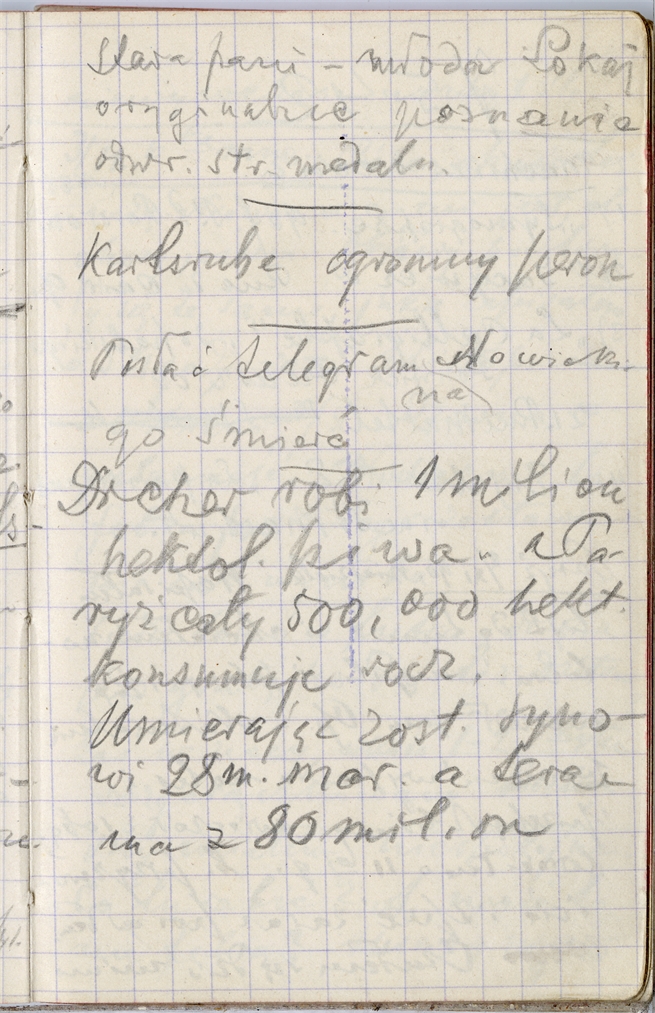 Stara pani – młoda Lokaj
oryginalne poznania
odwr. str. medalu.
Karlsruhe ogromny peron
Posłać telegram Nowickie-
na
go śmierć
Dreher robi 1 milion
hektol. piwa. a Pa-
ryż cały 500,000 hekt.
konsumuje rocz.
Umierając zost. syno-
wi 28 m. mar. a teraz
ma z 80 milion